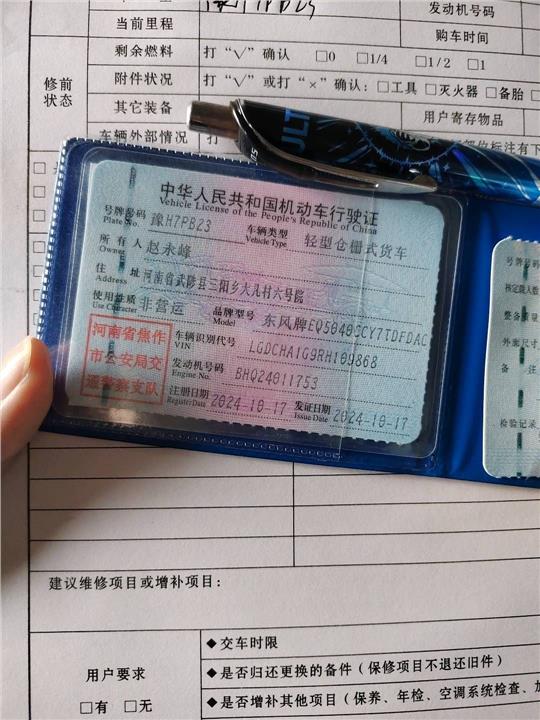 发动机号码
当前里程
购车时间
修前状态
剩余燃料 打“√”确认 □0 □1/4 □1/2 □1
附件状况 打“√”或打“×”确认：□工具 □灭火器 □备胎
其它装备
用户寄存物品
车辆外部情况 打
部位标注有下
JLT
中华人民共和国机动车行驶证
Vehicle License of the People's Republic of China
号牌号码 豫H7PB23 车辆类型 轻型仓栅式货车
Plate No. Vehicle Type
所有人 赵永峰
Owner
住址 河南省武陟县三阳乡大儿村六号院
Address
使用性质 非营运 品牌型号 东风牌EQ5040CCY7TDFDAC
Use Character Model
河南省焦作
市公安局交
通警察支队
车辆识别代号 LGDCHA1G9RH109868
VIN
发动机号码 BHQ24011753
Engine No.
注册日期 2024-10-17 发证日期 2024-10-17
Register Date Issue Date
号牌号码
核定载人数
整备质量
外廓尺寸
备注
检验记录
建议维修项目或增补项目：
用户要求
□有 □无
◆交车时限
◆是否归还更换的备件（保修项目不退还旧件）
◆是否增补其他项目（保养、年检、空调系统检查、加